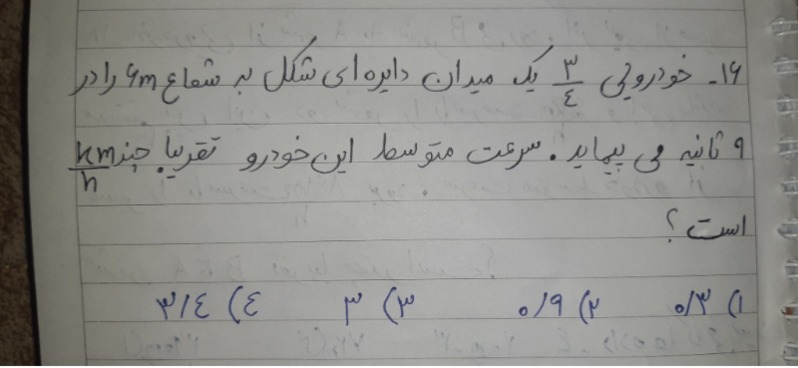 ۱۶- خودرویی ۳/٤ یک میدان دایره ای شکل به شعاع 6m را در
۹ ثانیه می پیماید. سرعت متوسط این خودرو تقریبا چند km/h
است؟
۱) ۰/۳ ۲) ۰/۹ ۳) ۳ ٤) ۳/٤